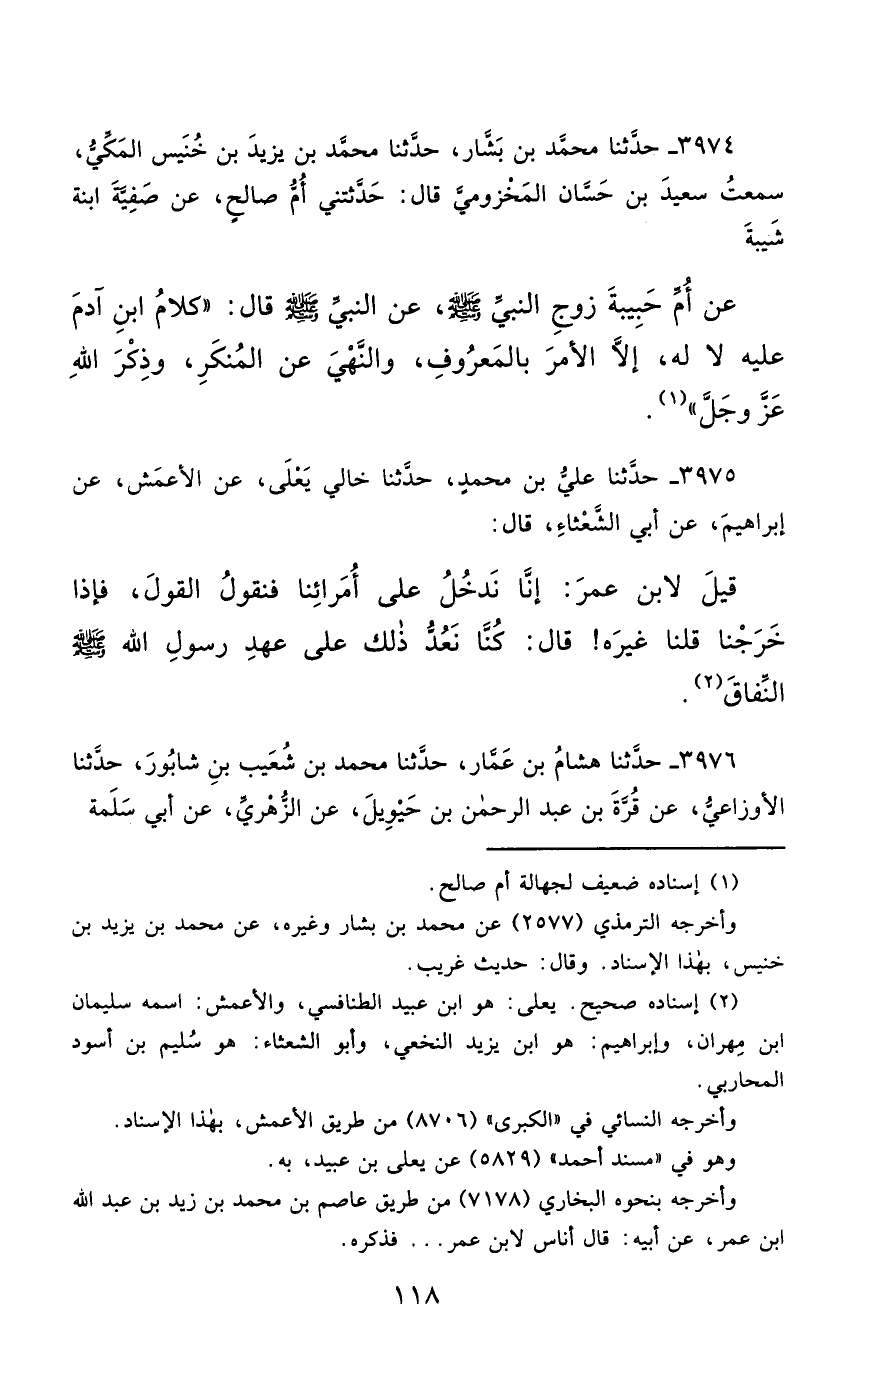 ٣٩٧٤ـ حدَّثنا محمَّد بن بَشَّار، حدَّثنا محمَّد بن يزيدَ بن خُنَيس المَكِّيُّ،
سمعتُ سعيدَ بن حَسَّان المَخْزوميَّ قال: حَدَّثتني أُمُّ صالحٍ، عن صَفِيَّةَ ابنة
شَيبةَ
عن أُمِّ حَبِيبةَ زوجِ النبيِّ ﷺ، عن النبيِّ ﷺ قال: «كلامُ ابنِ آدمَ
عليه لا له، إلاَّ الأمرَ بالمَعرُوفِ، والنَّهْيَ عن المُنكَرِ، وذِكْرَ اللهِ
عَزَّ وجَلَّ»(١).
٣٩٧٥ـ حدَّثنا عليُّ بن محمدٍ، حدَّثنا خالي يَعْلَى، عن الأعمَش، عن
إبراهيمَ، عن أبي الشَّعْثاءِ، قال:
قيلَ لابن عمرَ: إنَّا نَدخُلُ على أُمَرائِنا فنقولُ القولَ، فإذا
خَرَجْنا قلنا غيرَه! قال: كُنَّا نَعُدُّ ذٰلك على عهدِ رسولِ الله ﷺ
النِّفاقَ(٢).
٣٩٧٦ـ حدَّثنا هشامُ بن عَمَّار، حدَّثنا محمد بن شُعَيب بنِ شابُورَ، حدَّثنا
الأوزاعيُّ، عن قُرَّةَ بن عبد الرحمٰن بن حَيْوِيلَ، عن الزُّهْريِّ، عن أبي سَلَمة
(١) إسناده ضعيف لجهالة أم صالح.
وأخرجه الترمذي (٢٥٧٧) عن محمد بن بشار وغيره، عن محمد بن يزيد بن
خنيس، بهٰذا الإسناد. وقال: حديث غريب.
(٢) إسناده صحيح. يعلى: هو ابن عبيد الطنافسي، والأعمش: اسمه سليمان
ابن مِهران، وإبراهيم: هو ابن يزيد النخعي، وأبو الشعثاء: هو سُليم بن أسود
المحاربي.
وأخرجه النسائي في «الكبرى» (٨٧٠٦) من طريق الأعمش، بهٰذا الإسناد.
وهو في «مسند أحمد» (٥٨٢٩) عن يعلى بن عبيد، به.
وأخرجه بنحوه البخاري (٧١٧٨) من طريق عاصم بن محمد بن زيد بن عبد الله
ابن عمر، عن أبيه: قال أناس لابن عمر... فذكره.
١١٨